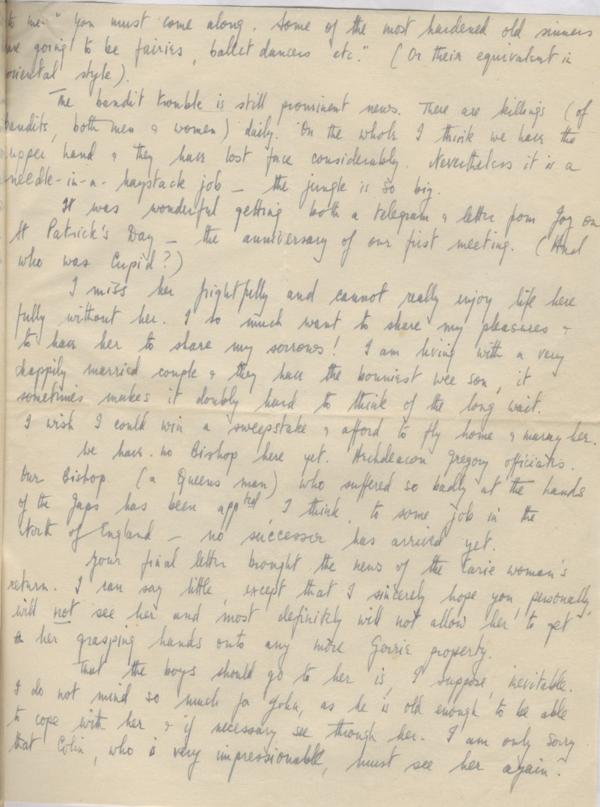 to me." You must come along. Some of the most hardened old sinners
are going to be fairies, ballet dancers etc." (Or their equivalent in
oriental style).
The bandit trouble is still prominent news. There are killings (of
bandits, both men & women) daily. On the whole I think we have the
upper hand & they have lost face considerably. Nevertheless it is a
needle-in-a-haystack job – the jungle is so big.
It was wonderful getting both a telegram & letter from Joy on
St Patrick's Day – the anniversary of our first meeting. (And
who was Cupid?)
I miss her frightfully and cannot really enjoy life here
fully without her. I so much want to share my pleasures &
to have her to share my sorrows! I am living with a very
happily married couple & they have the bonniest wee son, it
sometimes makes it doubly hard to think of the long wait.
I wish I could win a sweepstake & afford to fly home & marry her.
We have no Bishop here yet. Archdeacon Gregory officiates.
Our Bishop. (a Queens man) who suffered so badly at the hands
of the Japs has been appted, I think, to some job in the
North of England – no successor has arrived yet.
Your final letter brought the news of the woman's
return. I can say little, except that I sincerely hope you personally
will not see her and most definitely will not allow her to get
her grasping hands onto any more Gorrie property.
That the boys should go to her is, I suppose, inevitable.
I do not mind so much for John, as he is old enough to be able
to cope with her & if necessary see through her. I am only sorry
that Colin, who is very impressionable, must see her again.